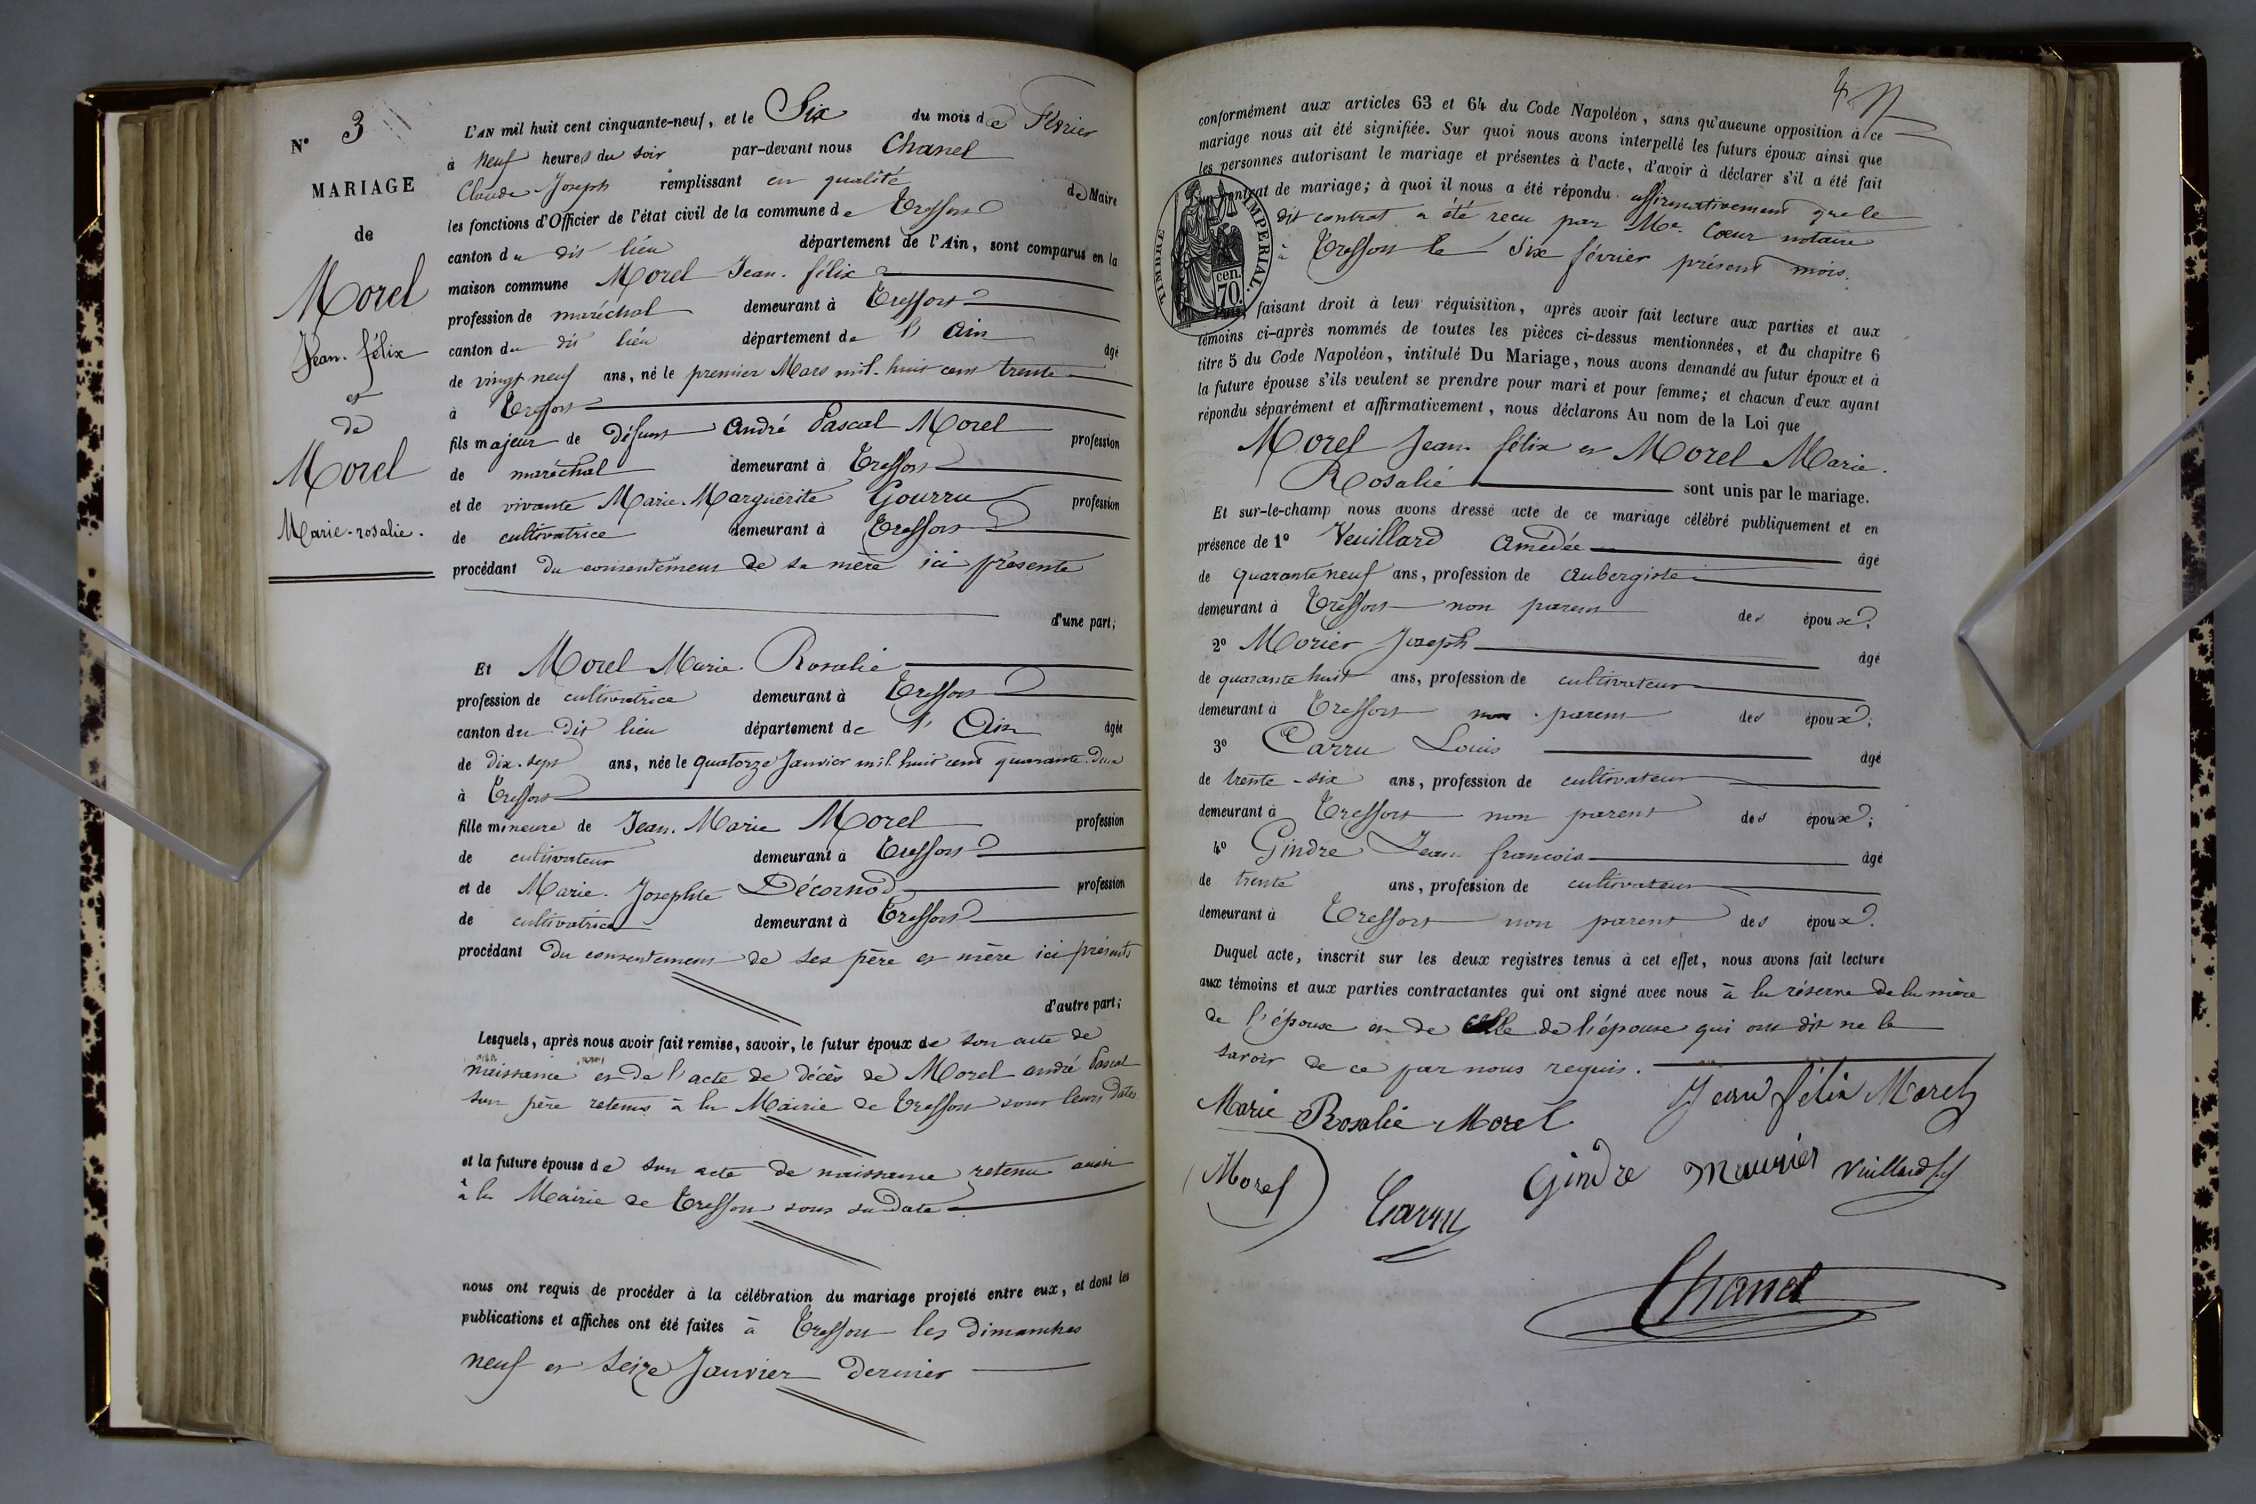 N° 3
MARIAGE
de
Morel
Jean. félix
et
de
Morel
Marie-rosalie.
L'AN mil huit cent cinquante-neuf, et le Six du mois de Février
à neuf heures du soir par-devant nous Chanel
Claude Joseph remplissant en qualité de Maire
les fonctions d'Officier de l'état civil de la commune de Treffort
canton du dit lieu département de l'Ain, sont comparus en la
maison commune Morel Jean. félix
profession de maréchal demeurant à Treffort
canton du dit lieu département de l'Ain âgé
de vingt neuf ans, né le premier Mars mil-huit cent trente
à Treffort
fils majeur de défunt André Pascal Morel profession
de maréchal demeurant à Treffort
et de vivante Marie-Marguerite Gourru profession
de cultivatrice demeurant à Treffort
procédant du consentement de sa mère ici présente
d'une part;
Et Morel Marie. Rosalie
profession de cultivatrice demeurant à Treffort
canton du dit lieu département de l'Ain âgée
de dix-sept ans, née le quatorze Janvier mil huit cent quarante-deux
à Treffort
fille mineure de Jean. Marie Morel profession
de cultivateur demeurant à Treffort
et de Marie. Josephte Décornod profession
de cultivatrice demeurant à Treffort
procédant du consentement de ses père et mère ici présents
d'autre part;
Lesquels, après nous avoir fait remise, savoir, le futur époux de son acte de
naissance et de l'acte de décès de Morel andré Pascal
son père retenus à la Mairie de Treffort sous leurs dates
et la future épouse de son acte de naissance retenu aussi
à la Mairie de Treffort sous sa date
nous ont requis de procéder à la célébration du mariage projeté entre eux, et dont les
publications et affiches ont été faites à Treffort les dimanches
neuf et seize Janvier dernier
conformément aux articles 63 et 64 du Code Napoléon, sans qu'aucune opposition à ce
mariage nous ait été signifiée. Sur quoi nous avons interpellé les futurs époux ainsi que
les personnes autorisant le mariage et présentes à l'acte, d'avoir à déclarer s'il a été fait
un contrat de mariage; à quoi il nous a été répondu affirmativement que le
dit contrat a été reçu par Me. Coeur notaire
à Treffort le Six février présent mois.
TIMBRE IMPERIAL.
cen.
70.
faisant droit à leur réquisition, après avoir fait lecture aux parties et aux
témoins ci-après nommés de toutes les pièces ci-dessus mentionnées, et du chapitre 6
titre 5 du Code Napoléon, intitulé Du Mariage, nous avons demandé au futur époux et à
la future épouse s'ils veulent se prendre pour mari et pour femme; et chacun d'eux ayant
répondu séparément et affirmativement, nous déclarons Au nom de la Loi que
Morel Jean félix et Morel Marie.
Rosalie sont unis par le mariage.
Et sur-le-champ nous avons dressé acte de ce mariage célébré publiquement et en
présence de 1° Veuillard Amédée âgé
de quarante neuf ans, profession de Aubergiste
demeurant à Treffort non parent des époux;
2° Morier Joseph âgé
de quarante huit ans, profession de cultivateur
demeurant à Treffort non parent des époux;
3° Carru Louis âgé
de trente-six ans, profession de cultivateur
demeurant à Treffort non parent des époux;
4° Gindre Jean francois âgé
de trente ans, profession de cultivateur
demeurant à Treffort non parent des époux.
Duquel acte, inscrit sur les deux registres tenus à cet effet, nous avons fait lecture
aux témoins et aux parties contractantes qui ont signé avec nous à la réserve de la mère
de l'époux et de celle de l'épouse qui ont dit ne le
savoir de ce par nous requis.
Jean félix Morel
Marie Rosalie Morel
Morel
Carru
Gindre Meurier Vuillard
Chanel